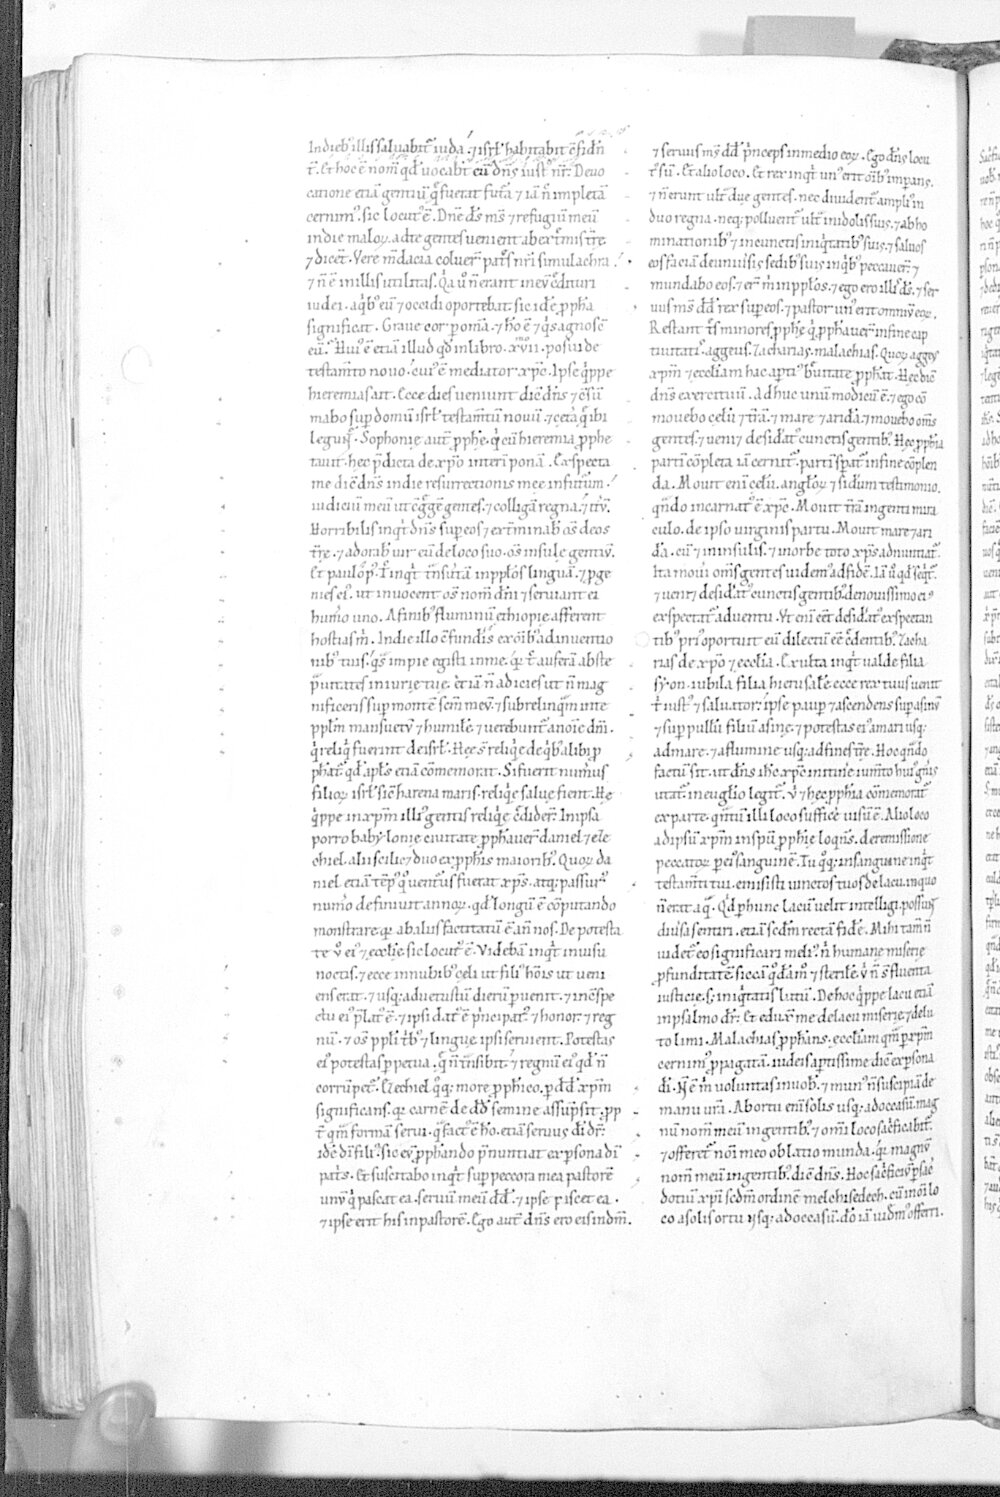 In dieb' illis saluabit̄ iuda. ⁊ isrl̄ habitabit c̄fidn̄
t̄. Et hoc ē nom̄ qd̄ uocabt̄ eū dn̄s iust' nr̄. De uo
catione etiā gentiū q̄ fuerat futā ⁊ iā n̄ impletā
cernim'. sic locut' ē. Dn̄e ds̄ ms̄ ⁊ refugiū meū
in die maloꝝ. ad te gentes uenient ab extmis tr̄e
⁊ dicēt. Vere m̄dacia coluer̄ patr̄s nr̄i simulachra
⁊ n̄ ē in illis utilitas. Qa ū n̄ erant in eū c̄dituri
iudei. a qb' eū ⁊ occidi oportebat. sic idē ppħa
significat. Graue cor p om̄a. ⁊ ho ē ⁊ qs agnoscē
eū. Hui' ē etiā illud qd̄ in libro. xvii. posui de
testam̄to nouo. cui' ē mediator xp̄c. Ipse q̄ppe
hieremias ait. Ecce dies ueniunt dic̄ dn̄s ⁊ c̄sū
mabo sup domū isrl̄ testam̄tū nouū. ⁊ cetā q̄ ibi
legunt̄. Sophonie aut̄ ppħe. q̄ cū hieremia ppħe
tauit. hec p̄dicta de xp̄o interī ponā. Expecta
me dic̄ dn̄s in die resurrectionis mee in futurum.
iudiciū meū ut c̄gḡe gentes. ⁊ colligā regna. ⁊ itū.
Horribilis inqt dn̄s sup eos ⁊ ext̄minab os̄ deos
tr̄e. ⁊ adorab uir eū de loco suo. os̄ insule gentiū.
Et paulo p'. T̄ inqt tn̄sutā in pplōs linguā. ⁊ pge
nies ei'. ut inuocent os̄ nom̄ dn̄i ⁊ seruiant ei
hum̄o uno. A finib' fluminū ethiopie afferent
hostias m̄. In die illo c̄fundis ex oīb' adinuentio
nib' tuis. q̄s impie egisti in me. qr t̄ auferā abs te
p̄uitates iniurie tue. et iā n̄ adicies ut n̄ mag
nificeris sup monte sc̄m meū. ⁊ subrelinqm̄ in te
pplm̄ mansuetū ⁊ humilē. ⁊ uerebunt̄ a noīe dn̄i.
q̄ reliq̄ fuerint de isrl̄. Hec s̄ reliqe de qb' alibi p
phat̄. qd̄ apls̄ etiā c̄memorat. Si fuerit num̄us
filioꝝ isrl̄ sic̄ harena maris. reliqe salue fient. He
q̄ppe in xp̄m illi' gentis reliqe c̄dider̄. In ipsa
porro babylonie ciuitate ppħauer̄ daniel ⁊ eze
chiel. alii scilic⁊ duo ex ppħis maioribꝰ. Quoꝝ da
niel etiā tēp' q' uentur̄us fuerat xp̄s. atq; passur'
num̄o definiuit annoꝝ. qd̄ longū ē c̄putando
monstrare. qr ab aliis factitatū ē an̄ nos. De potesta
te ū ei' ⁊ ecclie sic locut' ē. Videbā inqt in uisu
noctis. ⁊ ecce in nubib' celi ut fili' hōis ut ueni
ens erat. ⁊ usq; ad uetustū dierū puenit. ⁊ in c̄spe
ctu ei' p̄lat' ē. ⁊ ipsi dat' ē p̄ncipat' ⁊ honor. ⁊ reg
nū. ⁊ os̄ ppli t̄b' ⁊ lingue ipsi seruient. Potestas
ei' potestas ppetua. q̄ n̄ tn̄sibit. ⁊ regnū ei' qd̄ n̄
corrūpet̄. Ezechiel q̄q; more ppħico. p dd̄ xp̄m
significans. qr carnē de dd̄ semine assūpsit. pp
t̄ qm̄ formā serui. q̄ fact' ē ho. etiā seruus di dr̄.
idē di fili'. sic eū ppħando p̄nuntiat ex persona di
patr̄s. Et suscitabo inqt sup peccora mea pastorē
unū q̄ pascat ea. seruū meū dd̄. ⁊ ipse piscet ea.
⁊ ipse erit his in pastorē. Ego aut̄ dn̄s ero eis in dm̄.
⁊ seruus ms̄ dd̄ p̄nceps in medio eoꝝ. Ego dn̄s locu
t' sū. Et alio loco. Et rex inqt un' erit oīb' imperans.
⁊ n̄ erunt ult̄ due gentes. nec diuident̄ ampli' in
duo regna. neq; polluent̄ ult̄ in idolis suis. ⁊ abho
minationib' ⁊ in cunctis iniqtatib' suis. ⁊ saluos
eos faciā de uniuersis sedib' suis in qb' peccauer̄. ⁊
mundabo eos. ⁊ er̄ m̄ in pplōs. ⁊ ego ero illis ds̄. ⁊ ser
uus ms̄ dd̄ rex sup eos. ⁊ pastor un' erit omniū eoꝝ.
Restant tr̄s minores ppħe q̄ ppħauer̄ in fine cap
tiuitatis. aggeus. zacharias. malachias. Quoꝝ agge'
xp̄m ⁊ eccliam hac apti' breuitate ppħat. Hec dic̄
dn̄s exercituū. Adhuc unū modicū ē. ⁊ ego cō
mouebo celū ⁊ tr̄ā. ⁊ mare ⁊ aridā. ⁊ mouebo om̄s
gentes. ⁊ uen⁊ desidat' cunctis gentib'. Hec ppħia
partī c̄pleta iā cernit̄. partī sperat̄ in fine cōplen
da. Mouit enī celū. angloꝝ ⁊ siderum testimonio.
qn̄do incarnat' ē xp̄c. Mouit tr̄ā ingenti mira
culo. de ipso uirginis partu. Mouit mare ⁊ ari
dā. cū ⁊ in insulis. ⁊ in orbe toto xp̄s adnuntiat̄.
Ita moūi om̄s gentes uidem' ad fidē. Iā ū qd̄ seqt̄.
⁊ uen⁊ desidat' cunctis gentib' de nouissimo ei'
exspectat̄ aduentu. Vt enī eēt desidat' exspectan
tib' pri' oportuit eū dilectū eē c̄dentib'. Zacha
rias de xp̄o ⁊ ecclia. Exulta inqt ualde filia
syon. iubila filia hierusalē. ecce rex tuus uenit
t' iust' ⁊ saluator. ipse paup ⁊ ascendens sup asinū
⁊ sup pullū filiū asine. ⁊ potestas ei' a mari usq;
ad mare. ⁊ a flumine usq; ad fines tr̄e. Hoc qn̄do
factū sit. ut dn̄s ihc xp̄c in itine ium̄to hui' gn̄is
utat̄. in euglio legit̄. ū ⁊ hec ppħia c̄memorat̄
ex parte. qn̄tū illi loco sufficē uisū ē. Alio loco
ad ipsū xp̄m in spū ppħie loqns. de remissione
peccatoꝝ p ei' sanguinē. Tu qq; in sanguine inqt
testam̄ti tui. emisisti uinctos tuos de lacu. in quo
n̄ erat aq̄. Qd̄ p hunc lacū uelit intelligi. possunt
diuersa sentiri. etiā sc̄dm recta fidē. Mihi tam̄ n̄
uidet̄ eo significari meli'. n̄ humane miserie
pfunditatē siccā qdām' ⁊ sterilē. ū n̄ s̄ fluenta
iusticie. s; iniqtatis lutū. De hoc q̄ppe lacu etiā
in psalmo dr̄. Et eduxit me de lacu miserie ⁊ de lu
to limi. Malachias ppħans. eccliam qm̄ p xp̄m
cernim' ppagatā. iudeis aptissime dic̄ ex psona
di. N̄ ē m̄ uoluntas in uob'. ⁊ mun' n̄ suscipiā de
manu ura. Ab ortu enī solis usq; ad occasū. mag
nū nom̄ meū in gentib'. ⁊ omi loco sacficabit̄.
⁊ offeret̄ noī meo oblatio munda. qr magnū
nom̄ meū in gentib'. dic̄ dn̄s. Hoc sacficiū p sac̄
dotiū xp̄i sc̄dm ordinē melchisedech. cū in oī lo
co a solis ortu usq; ad occasū. do iā uidm' offerri.